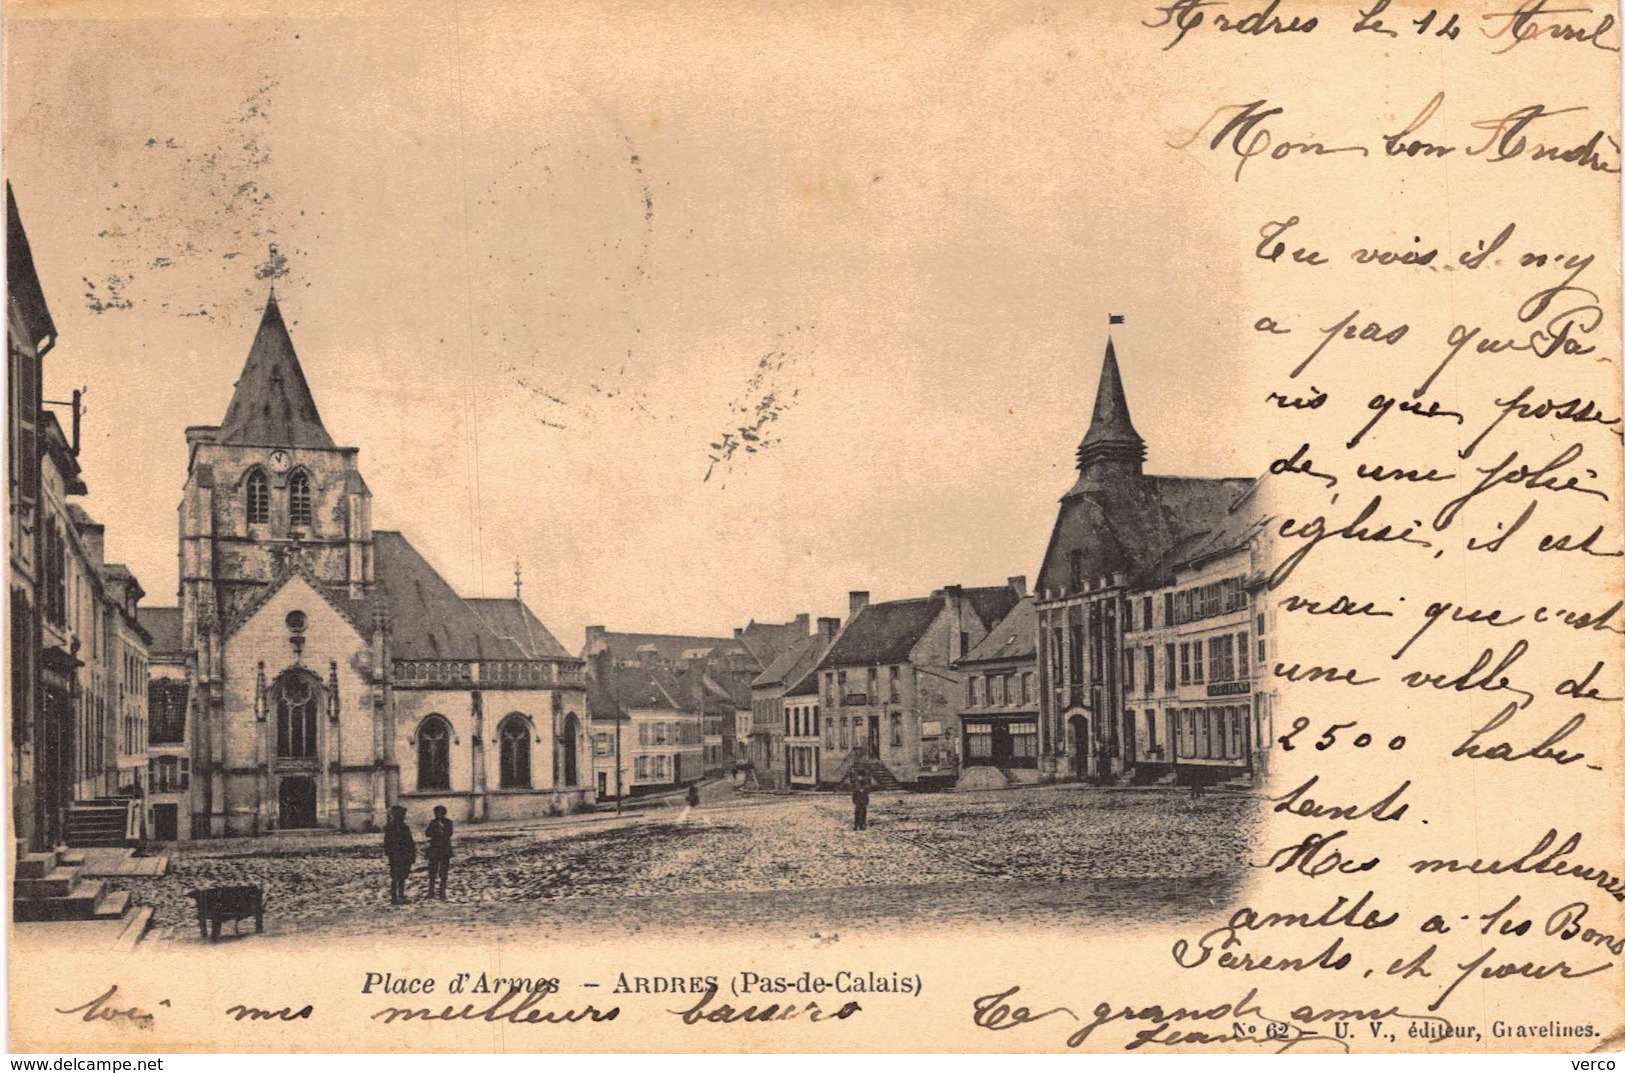 Ardres le 14 Avril
Mon bon André
Tu vois il n'y
a pas que Pa-
ris que possè-
de une jolie
église, il est
vrai que c'est
une ville de
2500 habi-
tants.
Mes meilleures
amitiés à tes Bons
Parents, et pour
toi mes meilleurs baisers
Ta grande amie
Place d'Armes – ARDRES (Pas-de-Calais)
Nº 62 – U. V., éditeur, Gravelines.
verco